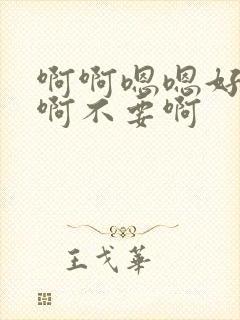 啊啊嗯嗯好
啊不要啊
王戈華